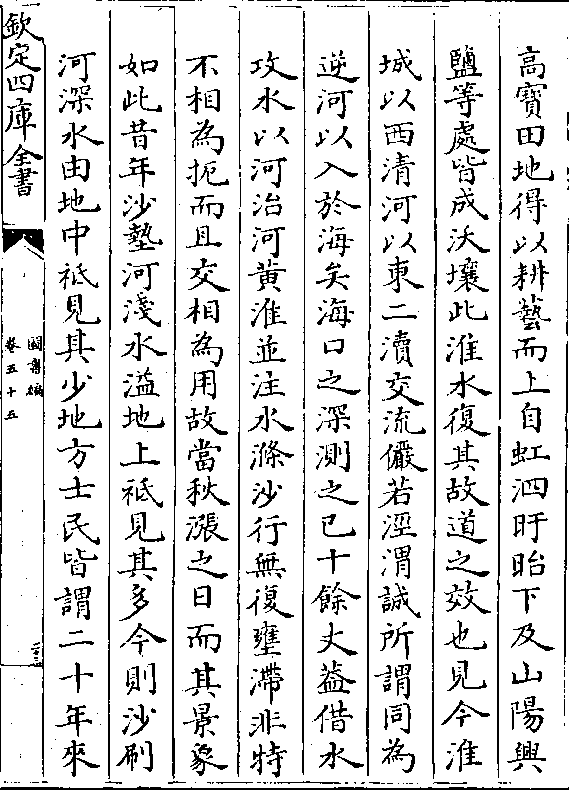 高寳田地得以耕藝而上自虹泗盱眙下及山陽興
鹽等處皆成沃壤此淮水復其故道之效也見今淮
城以西清河以東二瀆交流儼若涇渭誠所謂同為
逆河以入於海矣海口之深測之已十餘丈葢借水
攻水以河治河黄淮並注水滌沙行無復壅滯非特
不相為扼而且交相為用故當秋漲之日而其景象
如此昔年沙墊河淺水溢地上祗見其多今則沙刷
河深水由地中祗見其少地方士民皆謂二十年來
欽定四庫全書
圖書編
卷五十五